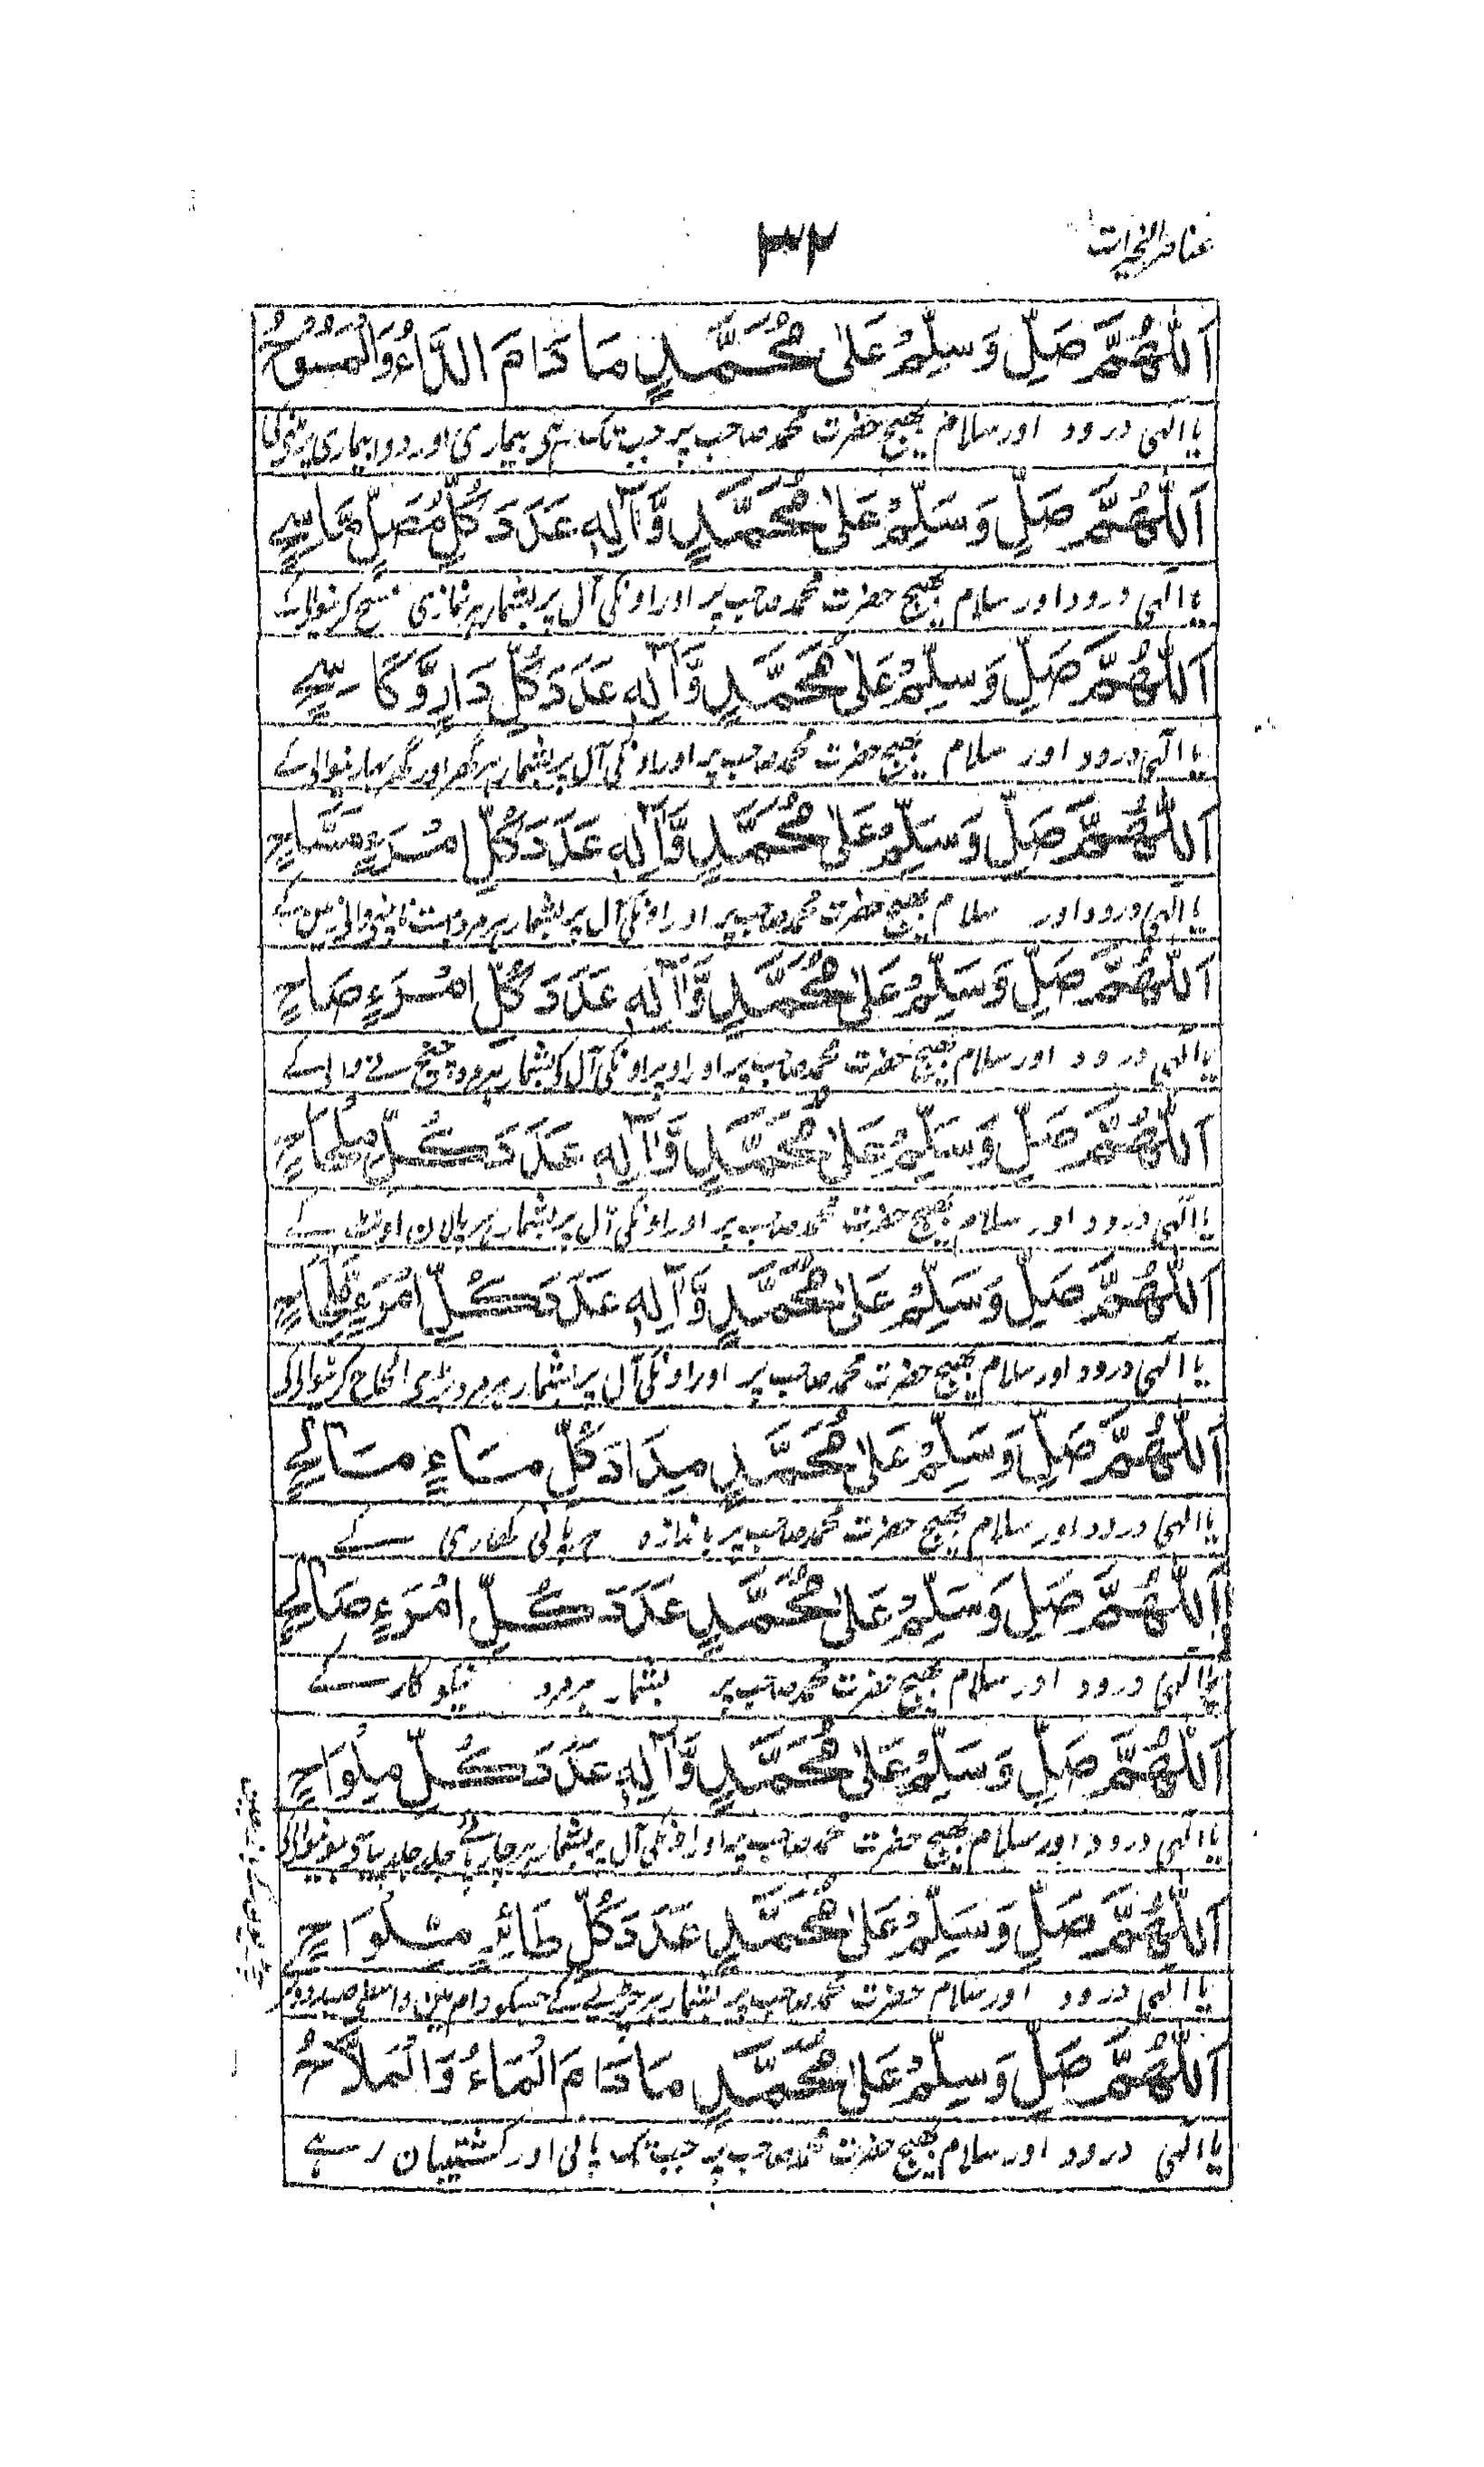 عناصر الخیرات ۳۲
اَللّٰهُمَّ صَلِّ وَسَلِّمْ عَلٰى مُحَمَّدٍ مَا دَامَ الدَّاءُ وَالْمَسُوْحُ
یا الٰہی درود اور سلام بھیج حضرت محمد صاحب پر جب تک ہی بیماری اور دوا بیماری
اَللّٰهُمَّ صَلِّ وَسَلِّمْ عَلٰى مُحَمَّدٍ وَّاٰلِهٖ عَدَدَ كُلِّ مُصَلٍّ مَّاسِحٍ
یا الٰہی درود اور سلام بھیج حضرت محمد صاحب پر اور اونکی آل پر بشمار ہر نمازی مسح کرنیوالے کے
اَللّٰهُمَّ صَلِّ وَسَلِّمْ عَلٰى مُحَمَّدٍ وَّاٰلِهٖ عَدَدَ كُلِّ دَارٍ وَّكَاسِحٍ
یا الٰہی درود اور سلام بھیج حضرت محمد صاحب پر اور اونکی آل پر بشمار ہر گھر اور گھر بہارنیوالے کے
اَللّٰهُمَّ صَلِّ وَسَلِّمْ عَلٰى مُحَمَّدٍ وَّاٰلِهٖ عَدَدَ كُلِّ امْرَءٍ مَسَّاحٍ
یا الٰہی درود اور سلام بھیج حضرت محمد صاحب پر اور اونکی آل پر بشمار ہر مرد بہت ناپنے والے زمین کے
اَللّٰهُمَّ صَلِّ وَسَلِّمْ عَلٰى مُحَمَّدٍ وَّاٰلِهٖ عَدَدَ كُلِّ امْرَءٍ صَاحٍ
یا الٰہی درود اور سلام بھیج حضرت محمد صاحب پر اور اوپر اونکی آل کو بشمار ہر مرد والے کے
اَللّٰهُمَّ صَلِّ وَسَلِّمْ عَلٰى مُحَمَّدٍ وَّاٰلِهٖ عَدَدَ كُلِّ مِلْحَاحٍ
یا الٰہی درود اور سلام بھیج حضرت محمد صاحب پر اور اونکی آل پر بشمار ہر پالان اونٹ کے
اَللّٰهُمَّ صَلِّ وَسَلِّمْ عَلٰى مُحَمَّدٍ وَّاٰلِهٖ عَدَدَ كُلِّ امْرَءٍ
یا الٰہی درود اور سلام بھیج حضرت محمد صاحب پر اور اونکی آل پر بشمار ہر مرد بڑی کرنیوالے کی
اَللّٰهُمَّ صَلِّ وَسَلِّمْ عَلٰى مُحَمَّدٍ مِدَادَ كُلِّ مَاءٍ مَالِحٍ
یا الٰہی درود اور سلام بھیج حضرت محمد صاحب پر باندازہ ہر پانی کھاری کے
اَللّٰهُمَّ صَلِّ وَسَلِّمْ عَلٰى مُحَمَّدٍ عَدَدَ كُلِّ امْرَءٍ صَالِحٍ
یا الٰہی درود اور سلام بھیج حضرت محمد صاحب پر بشمار ہر مرد نیکو کار کے
اَللّٰهُمَّ صَلِّ وَسَلِّمْ عَلٰى مُحَمَّدٍ وَّاٰلِهٖ عَدَدَ كُلِّ مِلْوَاحٍ
یا الٰہی درود اور سلام بھیج حضرت محمد صاحب پر اور اونکی آل پر بشمار ہر چارپائے جلد جلد پیاسے ہونیوالے کی
اَللّٰهُمَّ صَلِّ وَسَلِّمْ عَلٰى مُحَمَّدٍ عَدَدَ كُلِّ طَائِرٍ مِلْوَاحٍ
یا الٰہی درود اور سلام حضرت محمد صاحب پر بشمار ہر چڑیے کے جسکو دام میں واسطے صید
اَللّٰهُمَّ صَلِّ وَسَلِّمْ عَلٰى مُحَمَّدٍ مَا دَامَ الْمَاءُ وَالْمَلَّاحُ
یا الٰہی درود اور سلام بھیج حضرت محمد صاحب پر جب تک پانی اور کشتیبان رہے